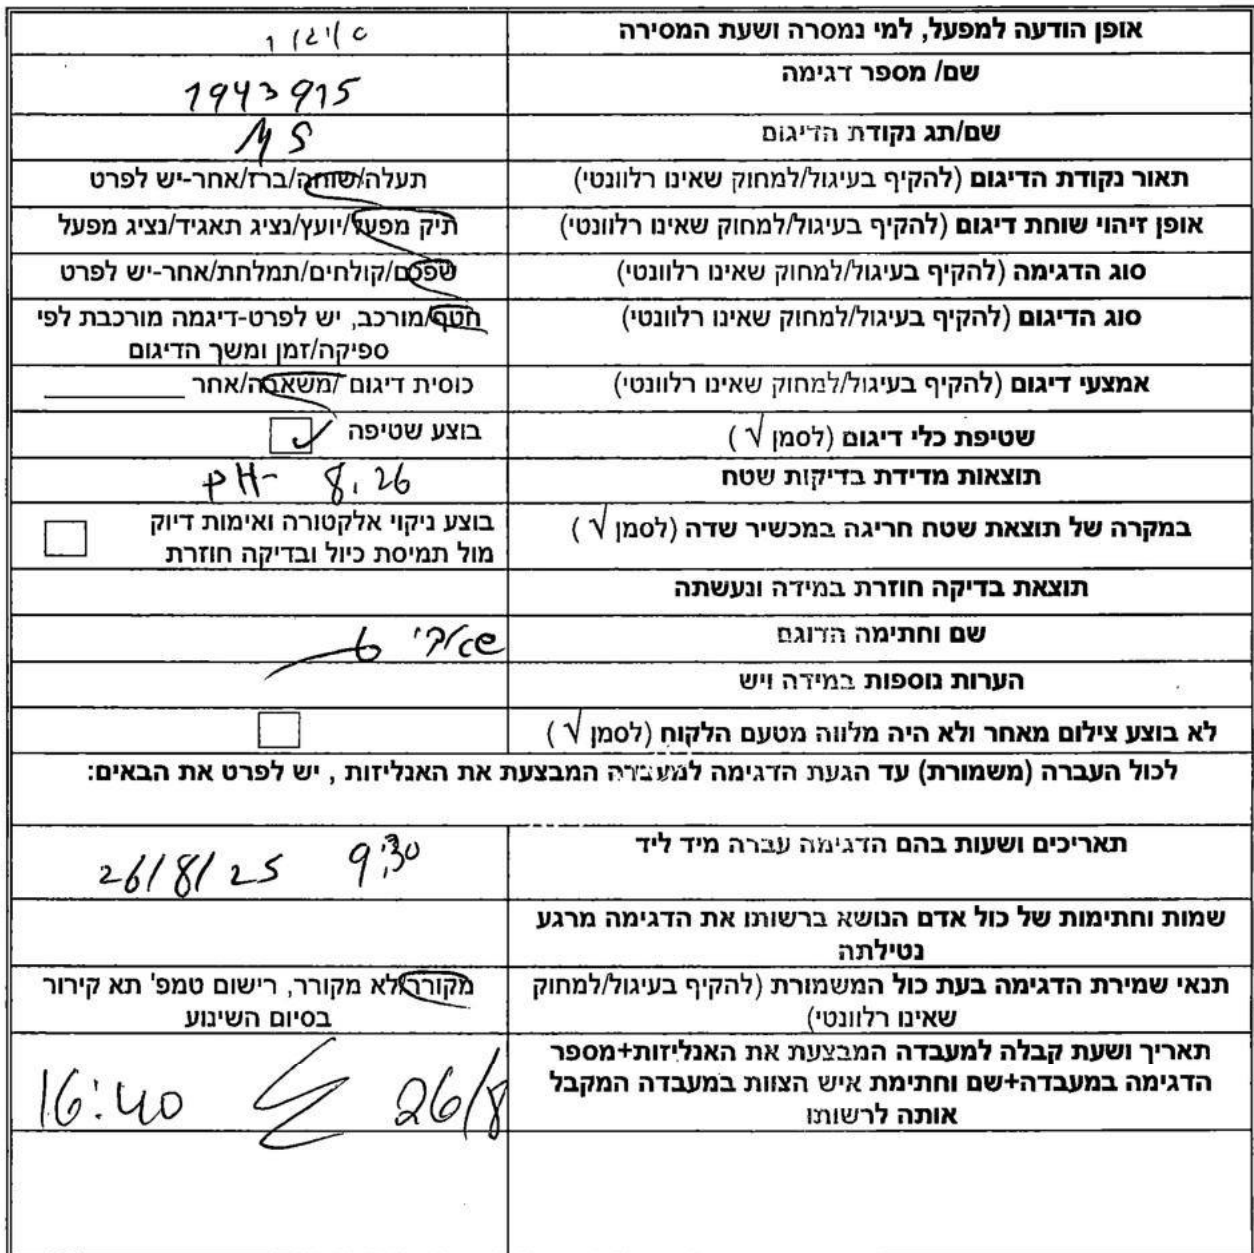 אופן הודעה למפעל, למי נמסרה ושעת המסירה
שם/ מספר דגימה 1943915
שם/תג נקודת הדיגום MS
תאור נקודת הדיגום (להקיף בעיגול/למחוק שאינו רלוונטי) תעלה/שוחה/ברז/אחר-יש לפרט
אופן זיהוי שוחת דיגום (להקיף בעיגול/למחוק שאינו רלוונטי) תיק מפעל/יועץ/נציג תאגיד/נציג מפעל
סוג הדגימה (להקיף בעיגול/למחוק שאינו רלוונטי) שפכים/קולחים/תמלחת/אחר-יש לפרט
סוג הדיגום (להקיף בעיגול/למחוק שאינו רלוונטי) חטף/מורכב, יש לפרט-דיגמה מורכבת לפי
ספיקה/זמן ומשך הדיגום
אמצעי דיגום (להקיף בעיגול/למחוק שאינו רלוונטי) כוסית דיגום /משאבה/אחר ________
שטיפת כלי דיגום (לסמן √ ) בוצע שטיפה ✓
תוצאות מדידת בדיקות שטח pH- 8.26
במקרה של תוצאת שטח חריגה במכשיר שדה (לסמן √ ) בוצע ניקוי אלקטורה ואימות דיוק
מול תמיסת כיול ובדיקה חוזרת
תוצאת בדיקה חוזרת במידה ונעשתה
שם וחתימה הדוגם
הערות נוספות במידה ויש
לא בוצע צילום מאחר ולא היה מלווה מטעם הלקוח (לסמן √ )
לכול העברה (משמורת) עד הגעת הדגימה למעבדה המבצעת את האנליזות , יש לפרט את הבאים:
תאריכים ושעות בהם הדגימה עברה מיד ליד 26/8/25 9:30
שמות וחתימות של כול אדם הנושא ברשותו את הדגימה מרגע
נטילתה
תנאי שמירת הדגימה בעת כול המשמורת (להקיף בעיגול/למחוק מקורר/לא מקורר, רישום טמפ' תא קירור
שאינו רלוונטי) בסיום השינוע
תאריך ושעת קבלה למעבדה המבצעת את האנליזות+מספר
הדגימה במעבדה+שם וחתימת איש הצוות במעבדה המקבל 26/8 16:40
אותה לרשותו